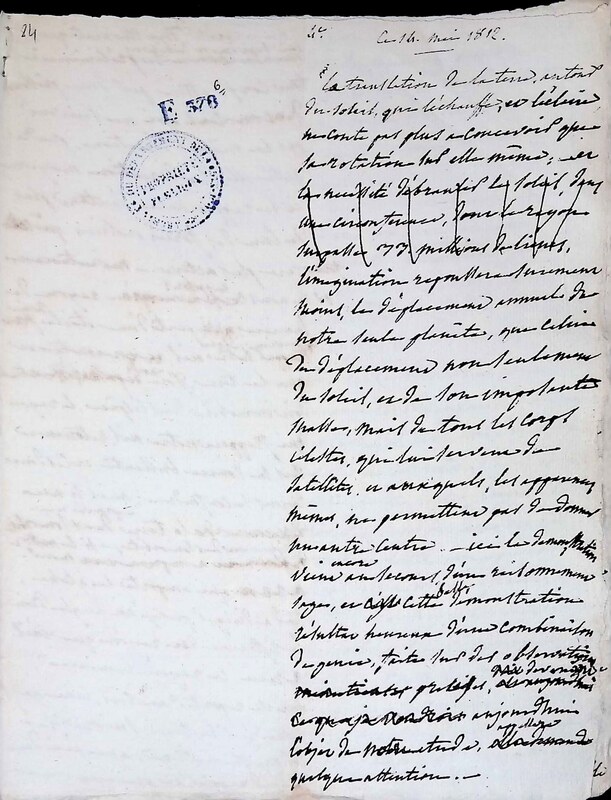 24
4e.
ce 14. mai 1812.
E 378
6
PROPRIÉTÉ
PUBLIQUE
La translation de la terre, autour
du soleil, qui l'échauffe, et l'éclaire
ne coute pas plus a concevoir que
sa rotation sur elle même; et
la nécessité d'ébranler le soleil, dans
une circonférence, dont le rayon
surpasse 77 millions de lieues,
l'imagination repoussera surement
moins, le déplacement annuel de
notre seule planète, que celui
du déplacement non seulement
du soleil, et de son imposante
masse, mais de tous les corps
célestes, qui lui servent de
satellites, et auxquels, les apparences
mêmes, ne permettent pas de donner
un autre centre. - ici la démonstration
vient encore au secours, d'un raisonnement
sage, et cette belle démonstration
résultat heureux d'une combinaison
de génie, faite sur des observations
aujourd'hui
l'objet de notre étude, appellera
quelque attention. -